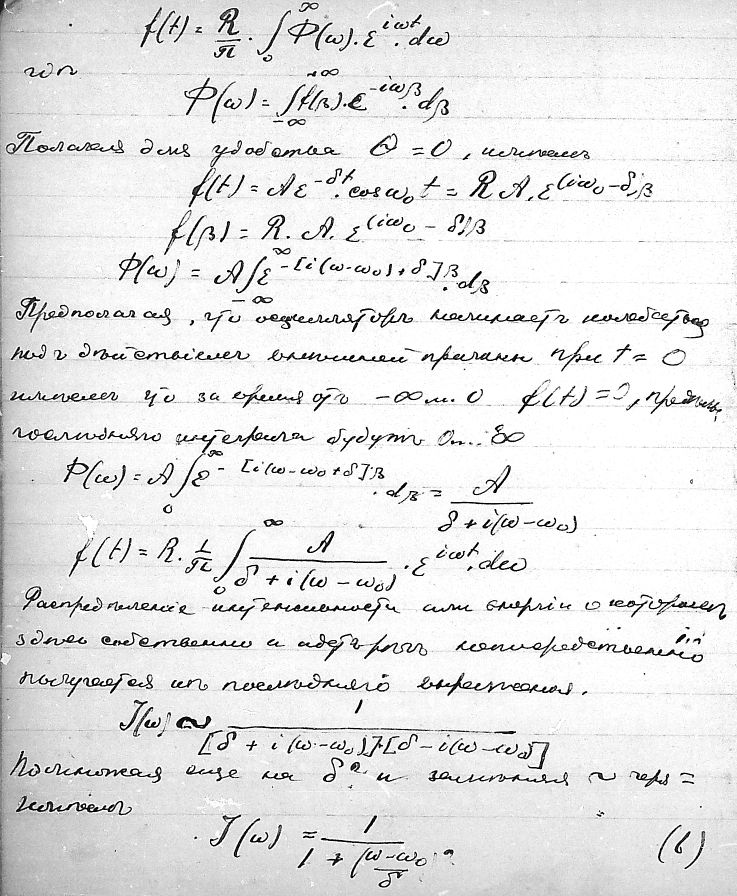 f(t) = R/π · ∫₀^∞ Φ(ω) · ε^{iωt} · dω
где
Φ(ω) = ∫_{-∞}^{+∞} f(β) · ε^{-iωβ} · dβ
Полагая для удобства Θ = 0, имѣемъ
f(t) = A ε^{-δt} · cos ω₀ t = R A · ε^{(iω₀-δ)β}
f(β) = R · A · ε^{(iω₀ - δ)β}
Φ(ω) = A ∫_{-∞}^{∞} ε^{-[i(ω-ω₀)+δ]β} · dβ
Предполагая, что осцилляторъ начинаетъ колебаться
подъ дѣйствіемъ внѣшней причины при t = 0
имѣемъ что за время отъ -∞ до 0 f(t) = 0, предѣлы
послѣдняго интеграла будутъ 0 ... ∞
Φ(ω) = A ∫₀^∞ ε^{-[i(ω-ω₀+δ]β} · dβ = A / (δ + i(ω-ω₀))
f(t) = R · 1/π ∫₀^∞ A / (δ + i(ω-ω₀)) · ε^{iωt} · dω
Распредѣленіе интенсивности или энергіи о которомъ
здѣсь собственно и идетъ рѣчь непосредственно
получается изъ послѣдняго выраженія.
J(ω) ~ 1 / [δ + i(ω-ω₀)]·[δ - i(ω-ω₀)]
Помножая еще на δ² и замѣняя ~ черезъ =
имѣемъ
J(ω) = 1 / (1 + ((ω-ω₀)/δ)²) (6)